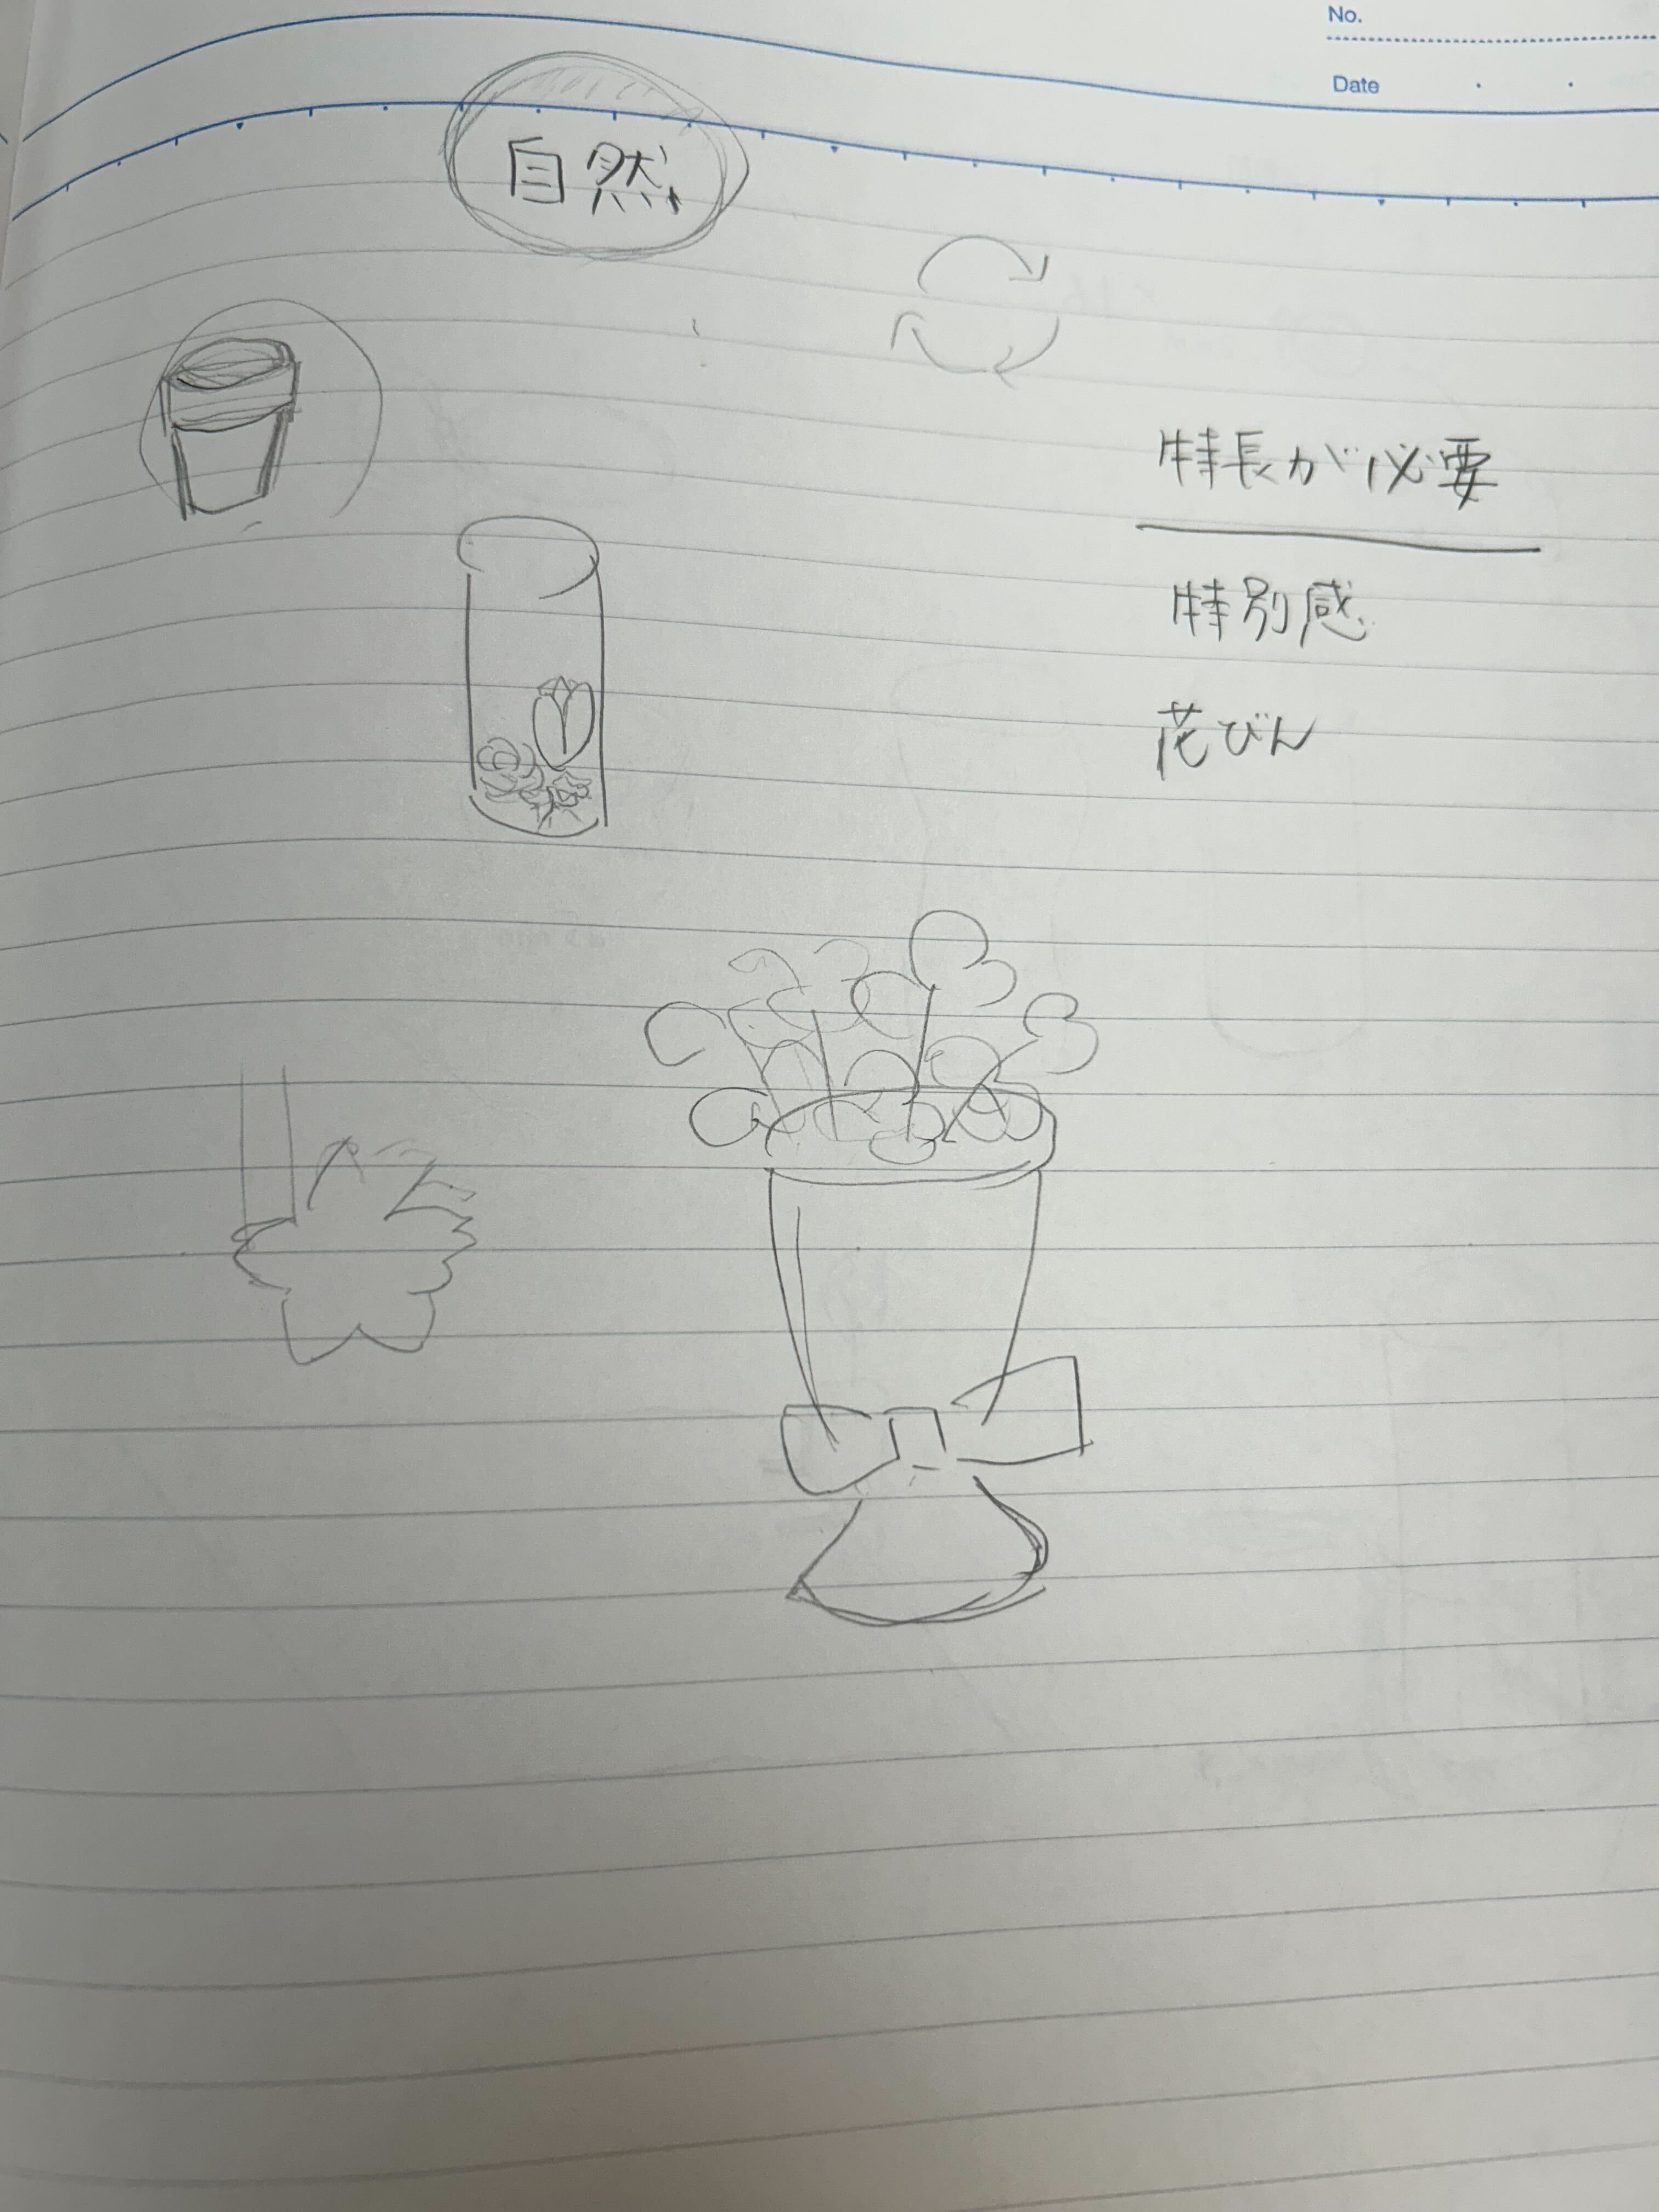 No.
Date
自然
特長が必要
特別感
花びん